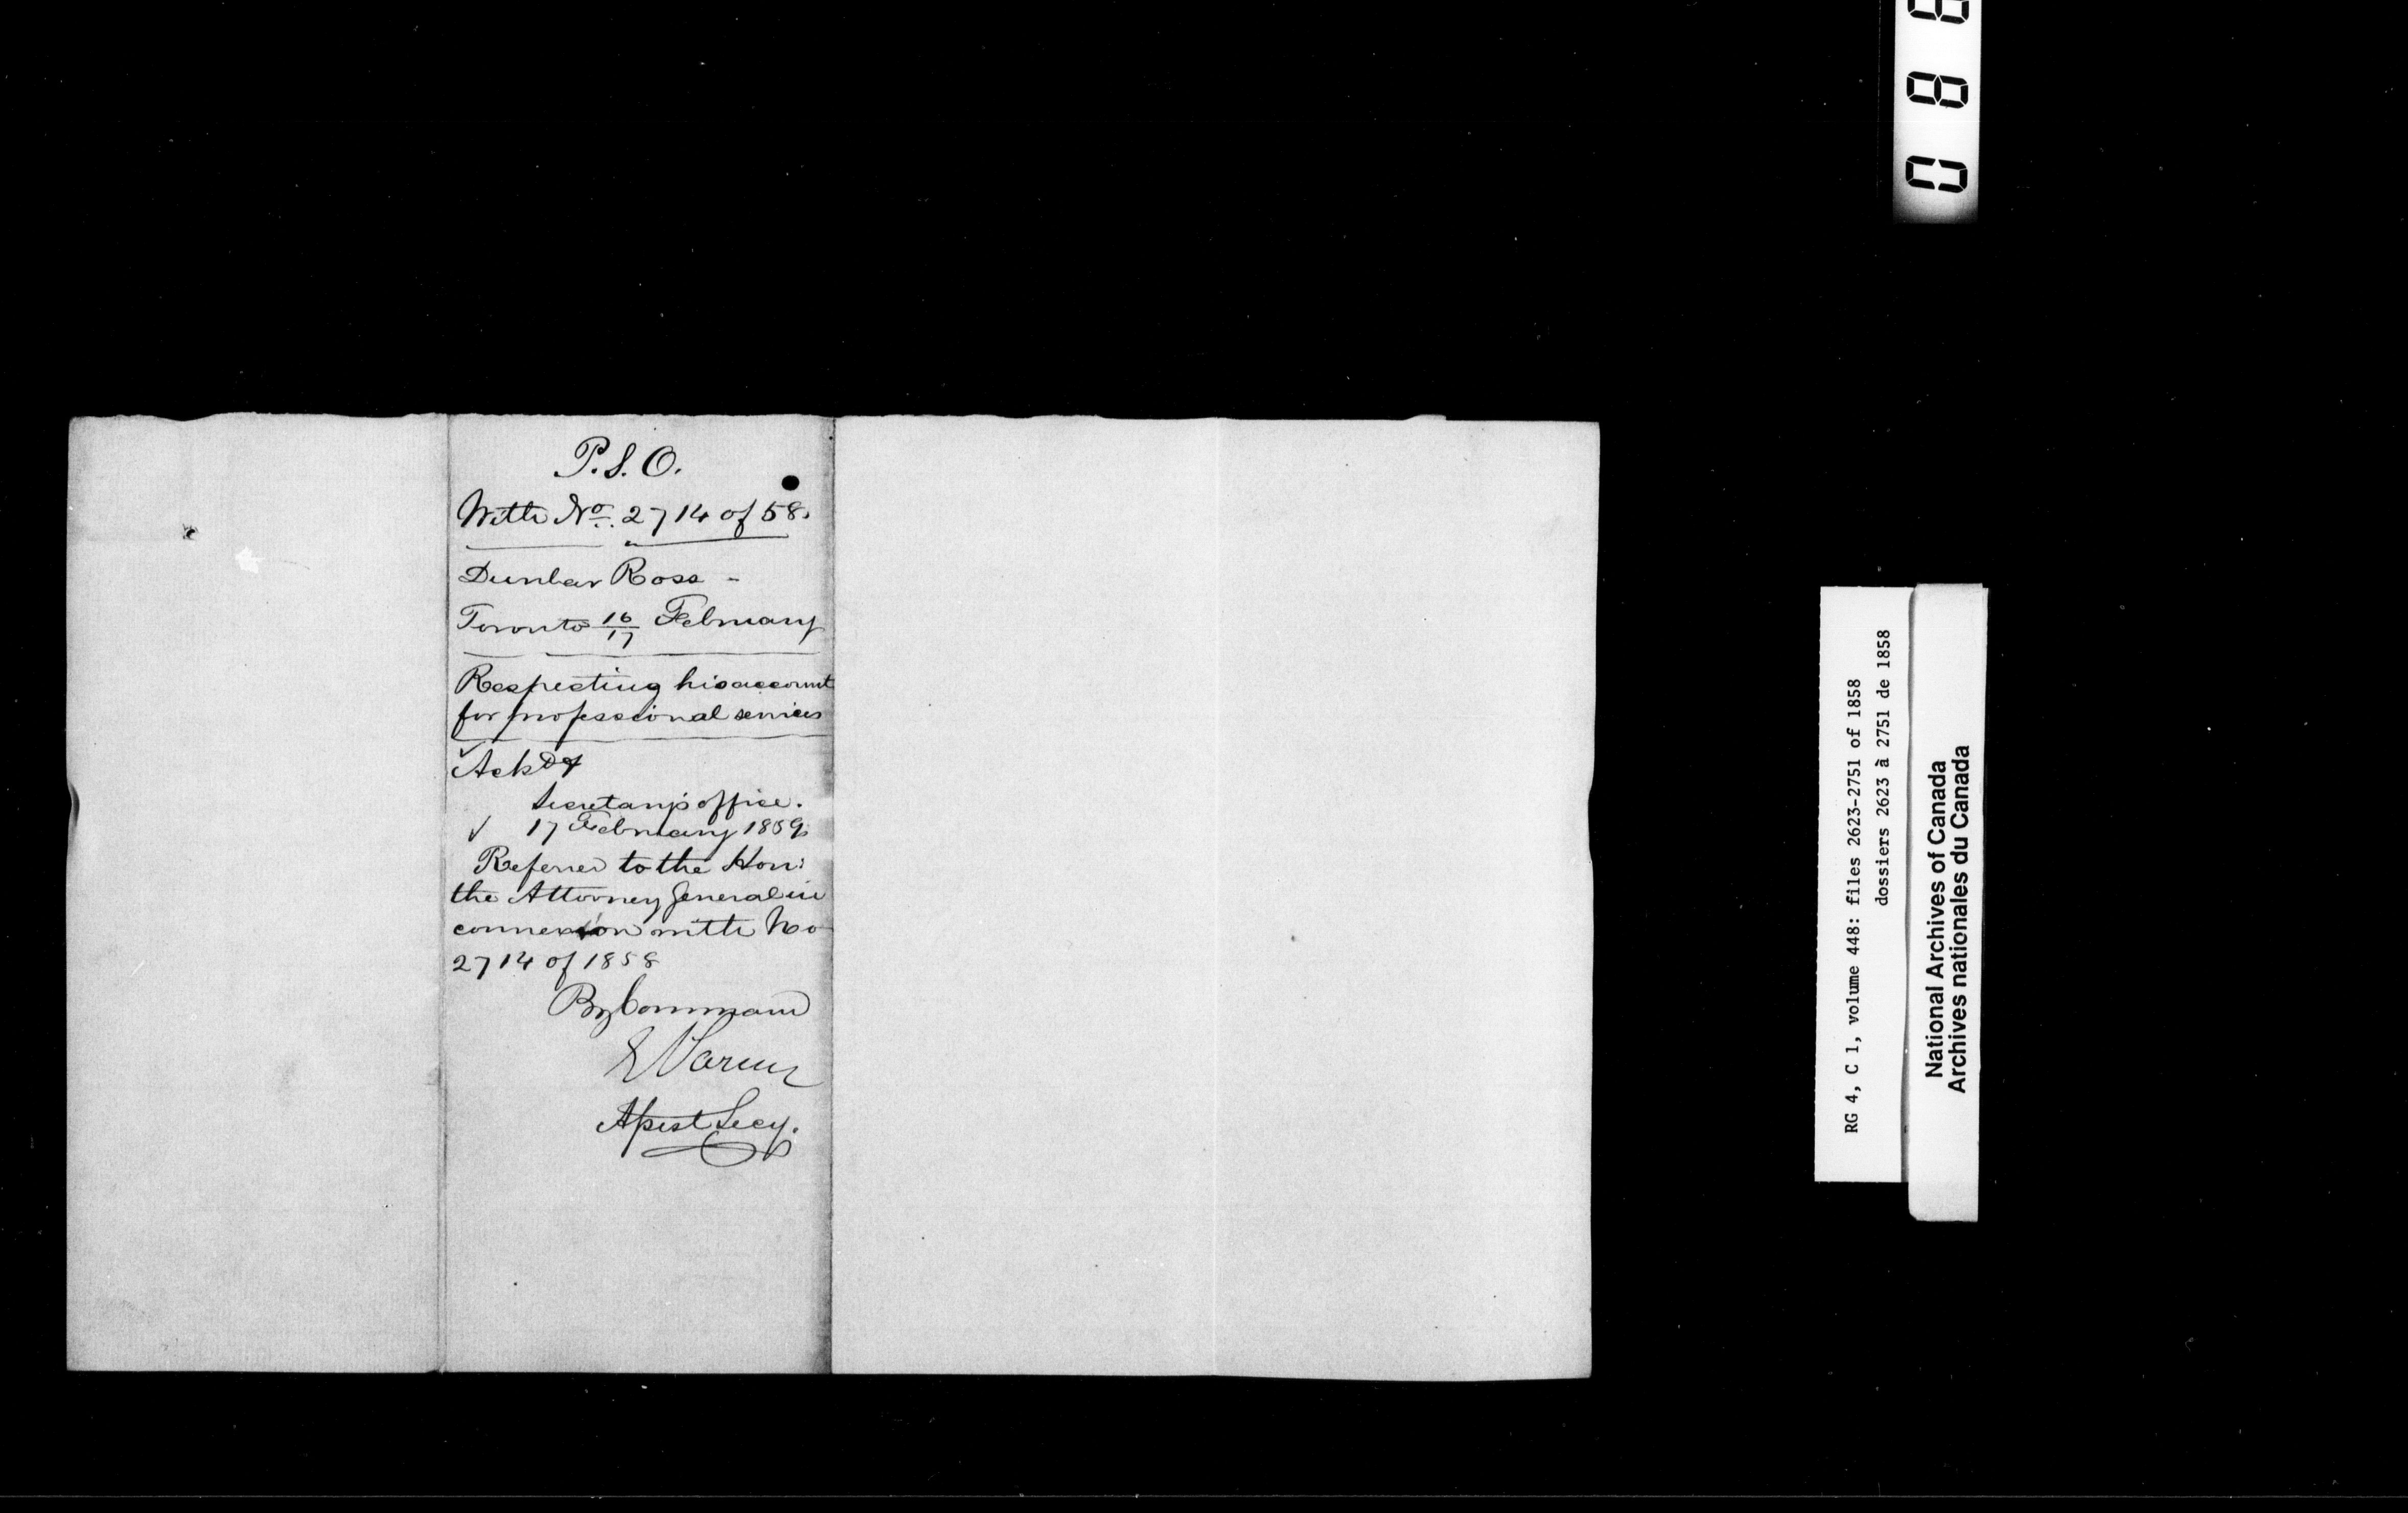 P.S.O.
With No. 2714 of 58.
Dunbar Ross -
Toronto 16/17 February
Respecting his account
for professional services
Ackd
Secretary's office.
17 February 1859
Referred to the Hon:
the Attorney General in
connexion with No
2714 of 1858
By Command
E Parent
Assist Secy.
0 8 8
RG 4, C 1, volume 448: files 2623-2751 of 1858
dossiers 2623 à 2751 de 1858
National Archives of Canada
Archives nationales du Canada